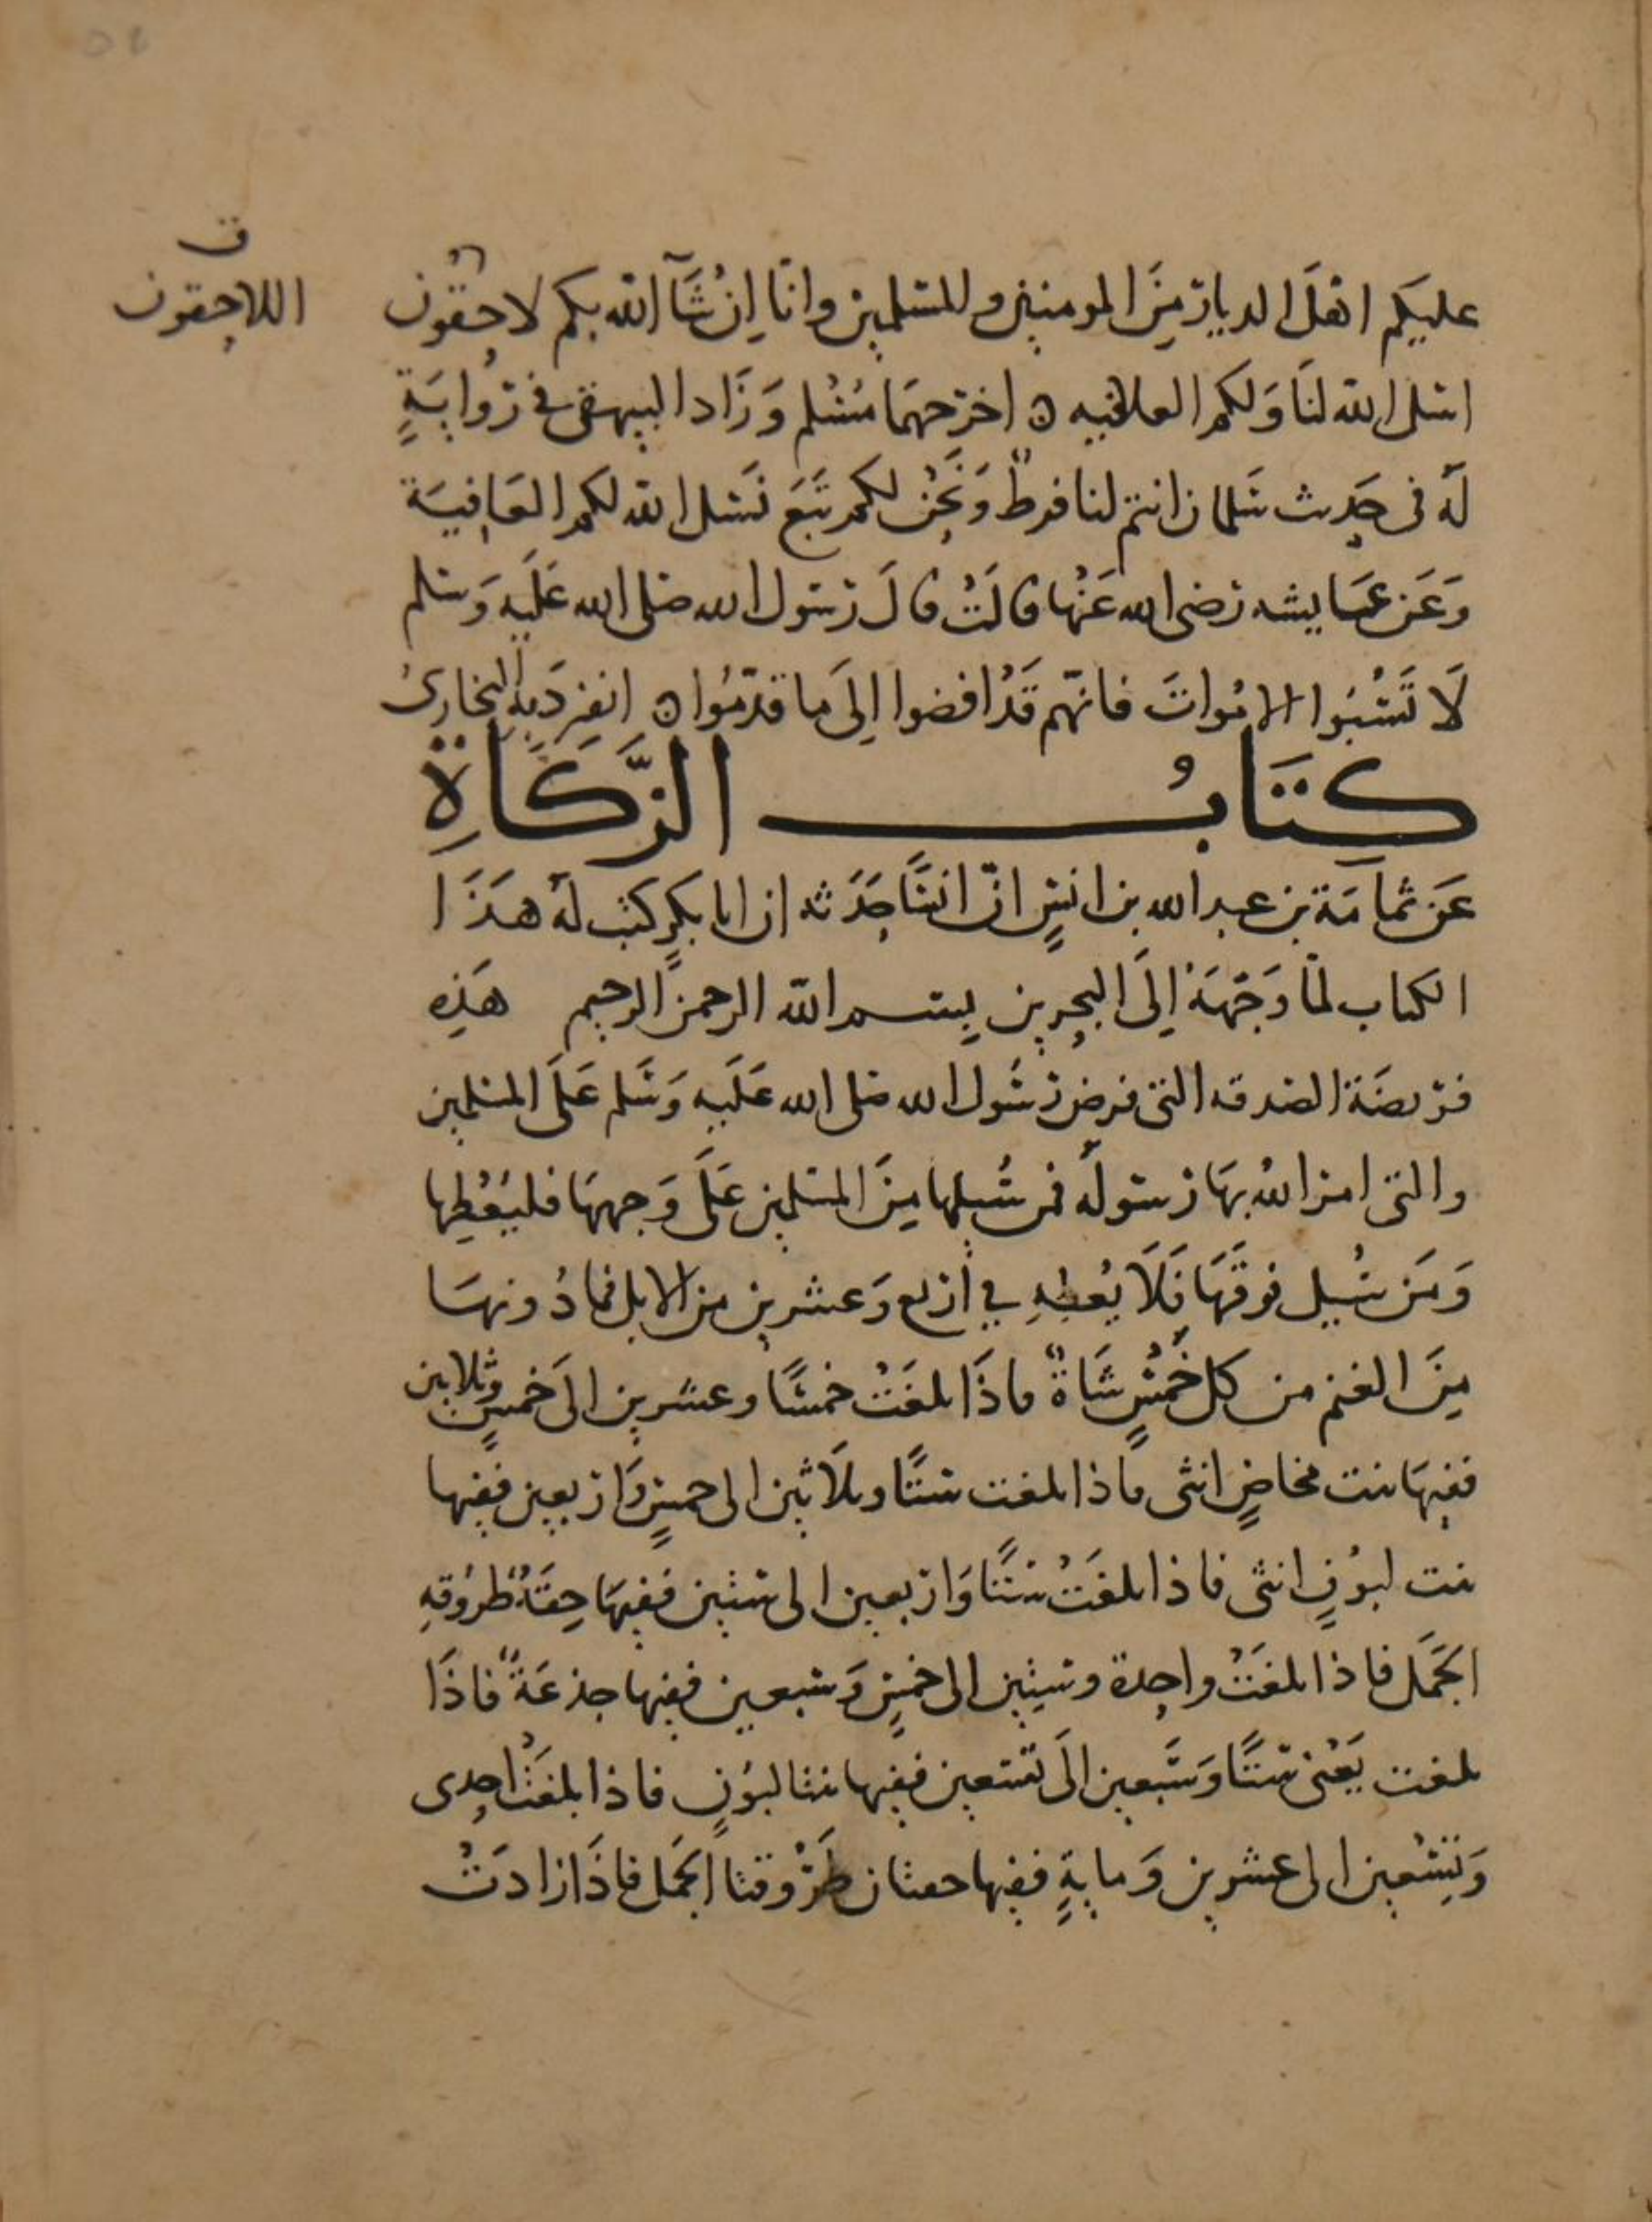 عليكم اهلَ الديار مِنَ المومنين والمسلمين وانّا اِنْ شَآ الله بكم لاحقون
ق
اللاحقون
اسل الله لنَا وَلكم العافيه ه اخرجهمَا مُسْلم وَزَاد البيهقى في رِوايَةٍ
لهُ فى حَدِيث سَلمان انتم لنا فرطٌ وَنَحْن لكم تَبَع نَسَل الله لكم العَافيَة
وَعَن عَايشه رَضى الله عَنْها قالَتْ قالَ رسَول الله صَلى الله عَلَيه وَسَلم
لَا تَسُبّوا الامْواتَ فانهّم قَدْ افضوا اِلىَ مَا قدّمُوا ه انفرَدَ بِهِ البخاريُ
كتَابُ الزَّكَاةِ
عَن ثمامَة بن عبد الله بن انسٍ انّ انسًا حَدَثه ان ابا بكرٍ كتبَ لهُ هَذَا
الكتاب لمّا وَجّهَهُ اِلىَ البحرين بِسم اللّه الرحمن الرحيم هَذِه
فريضَة الصَدقه التى فرض رسُول الله صَلى الله عَلَيه وَسَلم عَلىَ المسْلمِين
والتى امَر اللهُ بهَا رَسَوله فمن سُيلهَا مِنَ المسَلمِين عَلىَ وَجههَا فليُعْطِها
وَمَن سُيل فوقَهَا فَلَا يُعطِهِ في اربَع وَعشرين من الابل فمَا دُونهَا
مِنَ الغنم من كل خَمْسٍ شَاةٌ فاذَا بلغَتْ خمسًا وعشرين الىَ خمسٍ وثلاثين
ففِيهَا بنت مخاضٍ انثى فاذا بلغت ستًا وثلَاثين الى خمسٍ وَاربعِين ففِيها
بنت لبُونٍ انثى فاذا بلغَتْ ستًا وَاربعين الى ستين ففِيهَا حِقَةٌ طرُوقه
الجَمَل فاذا بلغَتْ واحدة وستِين الى خمسٍ وَسَبعين ففِيها جذعَةً فاذَا
بلغت يَعْنى ستًا وَسَبعين الىَ تسَعين ففِيها بنتا لبُونٍ فاذا بلغَتْ احدى
وَتِسْعين الى عشرين وَمايةٍ ففِيها حقتان طَرُوقتا الجَمَل فاذَا زادَتْ